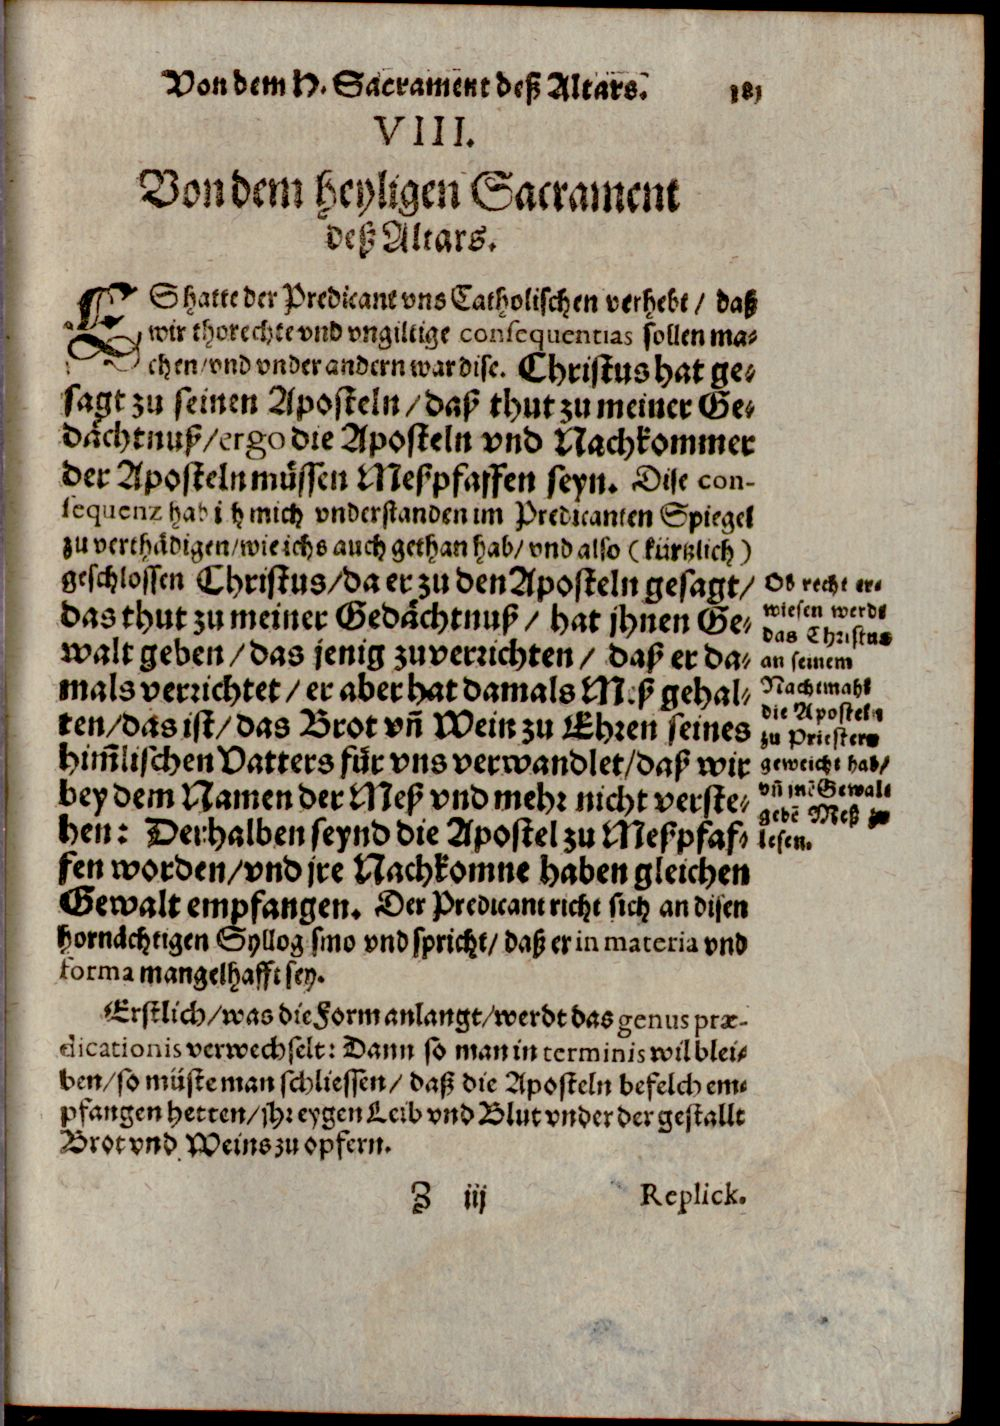 Von dem H. Sacrament deß Altars. 181
VIII.
Von dem heyligen Sacrament
deß Altars.
ES hatte der Predicant vns Catholischen verhebt / daß
wir thorechte vnd vngiltige consequentias sollen ma-
chen / vnd vnder andern war dise. Christus hat ge-
sagt zu seinen Aposteln / daß thut zu meiner Ge-
dächtnuß / ergo die Aposteln vnd Nachkommer
der Aposteln müssen Meßpfaffen seyn. Dise con-
sequenz hab ich mich vnderstanden im Predicanten Spiegel
zu verthädigen / wie ichs auch gethan hab / vnd also (kürtzlich)
geschlossen Christus / da er zu den Aposteln gesagt /
das thut zu meiner Gedächtnuß / hat jhnen Ge-
walt geben / das jenig zuverrichten / daß er da-
mals verrichtet / er aber hat damals Meß gehal-
ten / das ist / das Brot vñ Wein zu Ehren seines
him̃lischen Vatters für vns verwandlet / daß wir
bey dem Namen der Meß vnd mehr nicht verste-
hen: Derhalben seynd die Apostel zu Meßpfaf-
fen worden / vnd jre Nachkomne haben gleichen
Gewalt empfangen. Der Predicant richt sich an disen
hornächtigen Syllogismo vnd spricht / daß er in materia vnd
forma mangelhafft sey.
Ob recht er-
wiesen werde
das Christus
an seinem
Nachtmahl
die Aposteln
zu Priestern
geweicht hab /
vñ inẽ Gewalt
gebẽ Meß zu
lesen.
Erstlich / was die Form anlangt / werdt das genus præ-
dicationis verwechselt: Dann so man in terminis wil blei-
ben / so müste man schliessen / daß die Aposteln befelch em-
pfangen hetten / jhr eygen Leib vnd Blut vnder der gestallt
Brot vnd Weins zu opfern.
Z iij Replick.